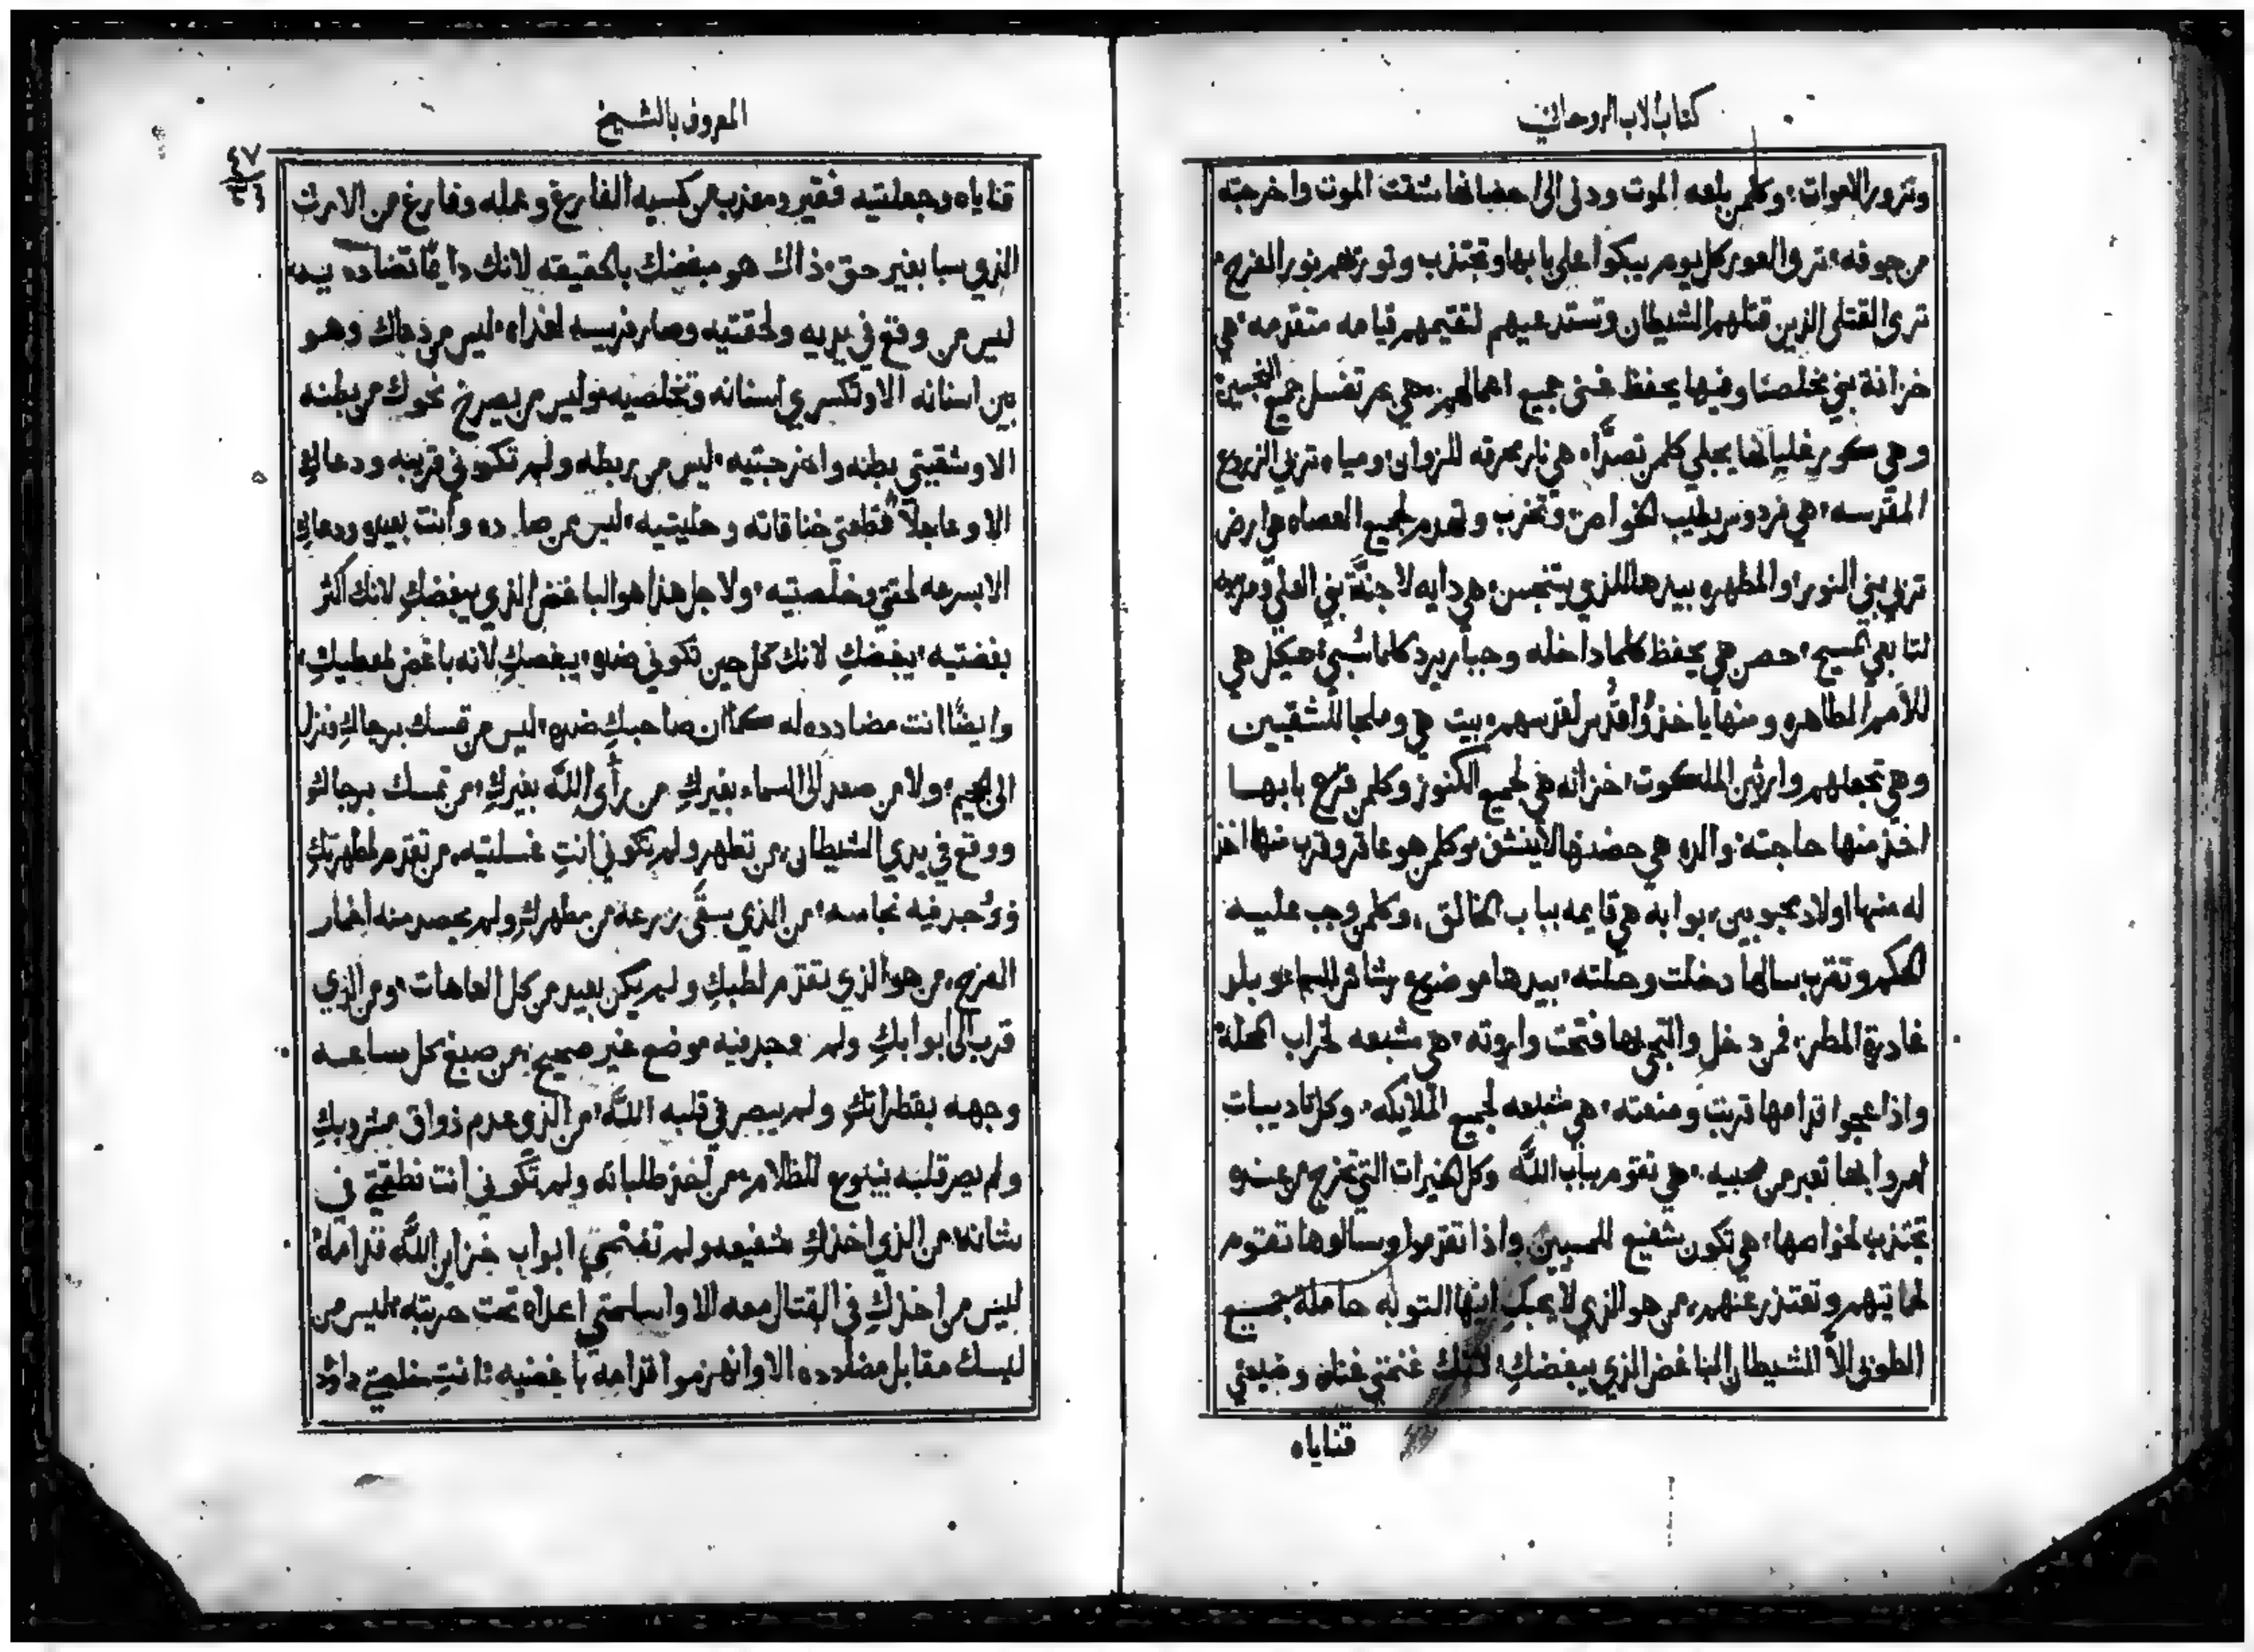 كتاب الاب الروحاني
وتزور الاموات؛ وكلمن بلعه الموت ودنى الى احضانها شقت الموت واخرجته
من جوفه؛ ترى العور كل يوم يبكوا على بابها وتجتذب وتورثهم نور الفرح؛
ترى القتلى الذين قتلهم الشيطان وتستدعيهم لتقيمهم قيامه متقدمه؛ هي
خزانة بني مخلصنا وفيها يحفظ غنى جميع اعمالهم؛ هي بحر تغسل جميع النجسين؛
وهي كور غليانها يجلي كلمن تصدَّا؛ هي نار محرقه للزوان؛ ومياه تربي الزروع
المقدسه؛ هي فردوس يطيب لخواصه؛ وتخرب وتهدم لجميع العصاه هي ارض
تربي بني النور؛ والمطهره بيدها للذي يتنجس؛ هي دايه لاجنَّة بني العلي ومربيه
لتابعي المسيح؛ حصن هي يحفظ كلما داخله وجبار يرد كلما سُبي؛ هيكل هي
للامم الطاهره ومنها ياخذوا قدس لقدسهم بيت هي وملجا للشقيين
وهي تجعلهم وارثين الملكوت؛ خزانه هي لجميع الكنوز وكلمن قرع بابها
اخذ منها حاجته؛ والده هي حضنها لا ينشف وكلمن هو عاقر وقرب منها اخذ
له منها اولاد محبوبين؛ بوابه هي قايمه بباب الخالق؛ وكلمن وجب عليه
الحكم وتقرب سالها دخلت وحلته؛ بيدها موضوع
المطر؛ فمن دخل والتجى بها فتحت واروته؛ هي مشبعه لخراب المحله؛
واذا عجوا قدامها قربت ومنعته؛ هي شفيعه لجميع الملايكه؛ وكل تاديبات
امروا بها تعبر من محبيه؛ هي تقوم بباب اللَّه وكل الخيرات التي تخرج من عنده
تجتذب لخواصها؛ هي تكون شفيع للمسيين واذا تقدموا وسالوها تقوم
لخايتهم وتعتذر عنهم؛ من هو الذي لا يحبكِ ايتها التوبه حاملة جميع
الطوبى الاَّ الشيطان الباغض الذي يبغضكِ؛ لانك غنمتي غناه وضيعتي
قناياه
المعروف بالشيخ
٤٧
قناياه وجعلتيه فقير ومعذب من كسبه الفارغ وعمله وفارغ من الارث
الذي سبا بغير حق؛ ذاك هو مبغضك بالحقيقه لانك دايمًا تضادده بيد؛
ليس من وقع في يديه ولحقتيه وصار فريسه لغذاه؛ ليس من دعاك وهو
بين اسنانه الا وتكسري اسنانه وتخلصيه؛ وليس من يصرخ نحوك من بطنه
الا وشقيتي بطنه واخرجتيه؛ ليس من ربطه ولم تكوني قريبه ودعاكِ
الا وعاجلًا قطعتي خناقاته وحليتيه؛ ليس من صاده وانت بعيده ودعاكِ
الا بسرعه لحقتي وخلصتيه؛ ولاجل هذا هو الباغض الذي يبغضكِ لانك اكثر
بغضتيه؛ يبغضكِ لانك كل حين تكوني ضده؛ يبغضكِ لانه باغض لمعطيكِ؛
وايضًا انت مضادده له كما ان صاحبكِ ضده؛ ليس من تمسك برجاكِ فنزل
الى الجحيم؛ ولا من صعد الى السماء بغيركِ من رأى اللَّه بغيركِ؛ من تمسك برجاكِ
ووقع في يدي الشيطان؛ من تطهر ولم تكوني انتِ غسلتيه؛ من تقدم لمطهرتكِ
ووُجد فيه نجاسه؛ من الذي سقَّى زرعه من مطهركِ ولم يحصد منه اغمار
الفرح؛ من هو الذي تقدم لطبكِ ولم يكن بعيد من كل العاهات؛ ومن الذي
قرب الى ابوابكِ ولم وجد فيه موضع غير صحيح؛ من صبغ كل ساعه
وجهه بقطراتكِ ولم يبصر في قلبه اللَّه؛ من الذي عدم ذواق مشروبكِ
ولم يصر قلبه ينبوع للظلام؛ من اخذ طلباته ولم تكوني انت نطقتي في
شانه؛ من الذي اخذكِ شفيعه ولم تفتحي ابواب خزاين اللَّه قدامه؛
ليس من اخذكِ في القتال معه الا واسلمتي اعداه تحت حربته؛ ليس من
لبسك مقابل مضادده الا وانهزموا قدامه باغضيه؛ انتِ خلصتي داود